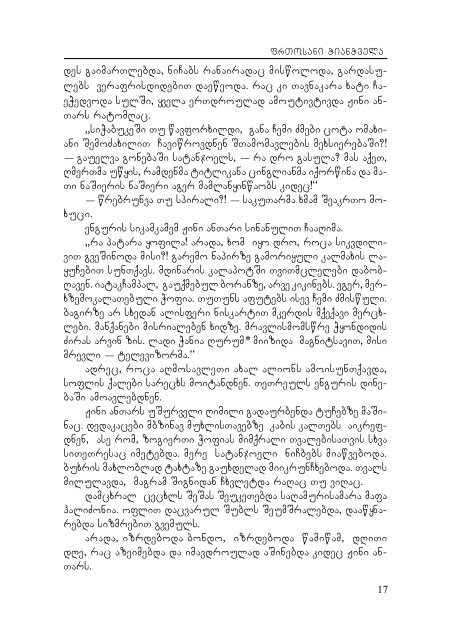 ფრთოსანი ჭიანჭველა
დეს გაიმართლებდა, ნიჩაბს რანაირადაც მისწოლოდა, გარდასუ-
ლებს ვერაფრისდიდებით დაეწეოდა. რაც კი თავნაკარა ხატი ჩა-
ეჭედვოდა სულში, ყველა ერთდროულად ამოუტივტივდა ჟინი ან-
თარს რატომღაც.
„სიჭაბუკეში თუ წავფორხილდი, განა ჩემი ძმები ცოტა ომახი-
ანი შემოძახილით ჩავიწროვდნენ შთამომავლების მეხსიერებაში?!
— გაუელვა გონებაში სატანჯოელს, — რა დრო გასულა? მას აქეთ,
ღმერთმა უწყის, რამდენმა ტიტლიკანა ცინგლიანმა იქორწინა და მა-
თი ნაშიერის ნაშიერი აგერ მამლაყინწაობს კიდეც!“
— წრებრუნვა თუ სპირალი?! — საკუთარმა ხმამ შეაკრთო მო-
ხუცი.
ენგურის სიკამკამემ ჟინი ანთარი სინანულით ჩააღიმა.
„რა პატარა ყოფილა! არადა, ხომ იყო დრო, როცა სიკვდილი-
ვით გვეშინოდა მისი?! გარემო ნაპირზე გამორიყული კალმახის ლა-
ყუჩებით სუნთქავს. მდინარის კალაპოტში თვითმცლელები დაბობ-
ღავენ. იატაკჩამპალ, გაუქმებულ ბორანზე, არვე კიკინებს. ეგერ, მერ-
ხზემოკალათებული ჰოფია. თუთუნს აფუტებს ისევ ჩემი ძმისწული.
ბაგირზე არ სხედან ალისფერი ნისკარტით მკერდის მქექავი მერცხ-
ლები. მანქანები მისრიალებენ ხიდზე. მრავლისმომსწრე ჰყონდიდის
ძირას არვინ ზის. ლადი ჭანია ღურუმ* მიიზიდა მაგნიტსავით, მისი
მრევლი — ტელევიზორმა.“
ადრეც, როცა აღმოსავლეთი ახალ ალიონს ამოისუნთქავდა,
სოფლის ქალები სარეცხს მოიტანდნენ. თეთრეულს ენგურის დინე-
ბაში ამოავლებდნენ.
ჟინი ანთარს უშურველი ღიმილი გადაურბენდა ტუჩებზე მაში-
ნაც. დედაკაცები მბზინავ მუხლისთავებზე კაბის კალთებს აიკრეფ-
დნენ, ასე რომ, ზოგიერთი ჰოფიას მიმქრალი თვალებისათვის სხვა
სითეთრესაც იმეტებდა. მერე სატანჯოელი ნიჩბებს მიაწვებოდა.
ბუხრის მახლობლად ტახტაზე გაუხდელად მიიკრუნჩხებოდა. თვალს
მილულავდა, მაგრამ შიგნიდან ჩხვლეტდა რაღაც თუ ვიღაც.
დამცხრალ ცეცხლს შეშას შეუკეთებდა საღამურისამარა მაფა
ჰალიძონია. ოფლით დაცვარულ შუბლს შეუმშრალებდა, დააწყნა-
რებდა სიზმრებით გვემულს.
არადა, იზრდებოდა ბონდო, იზრდებოდა წამიწამ, დღითი
დღე, რაც აზეიმებდა და იმავდროულად აშინებდა კიდეც ჟინი ან-
თარს.
17